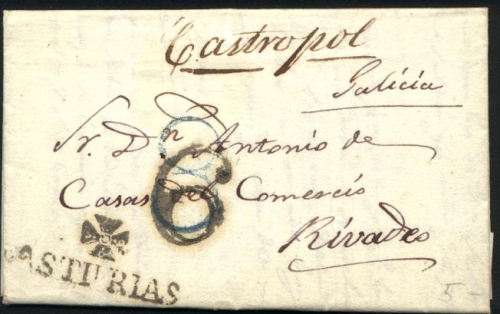 Castropol
Galicia
Sr. Dn. Antonio de
Casas del Comercio
Rivadeo
6
ASTURIAS
5-